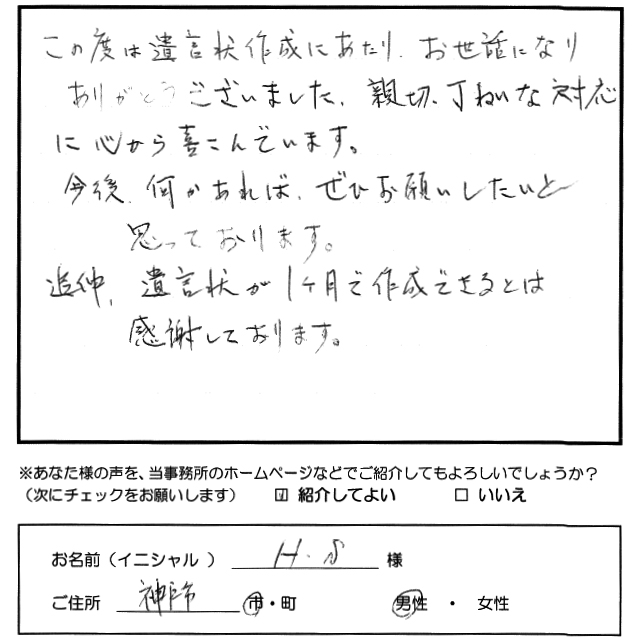 この度は遺言状作成にあたり、お世話になり
ありがとうございました、親切、丁ねいな対応
に心から喜こんでいます。
今後、何かあれば、ぜひお願いしたいと
思っております。
追伸、遺言状が1ヶ月で作成できるとは
感謝しております。
※あなた様の声を、当事務所のホームページなどでご紹介してもよろしいでしょうか？
（次にチェックをお願いします） ☑ 紹介してよい □ いいえ
お名前（イニシャル ） H.S 様
ご住所 神戸市 市・町 男性 ・ 女性